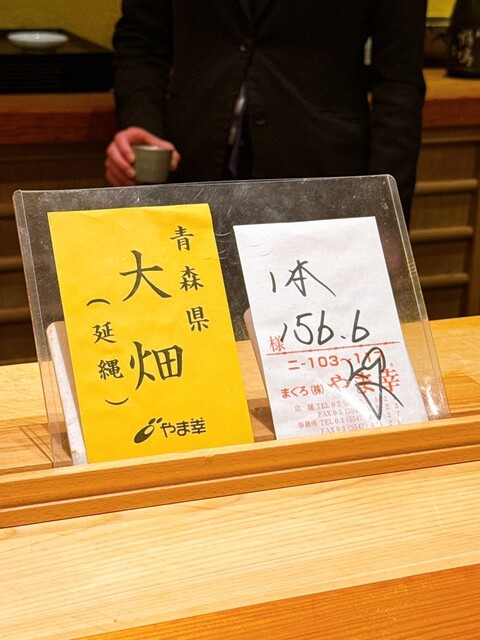 青森県
大畑
(延縄)
やま幸
1本
156.6
様
ニ-103~1
まぐろ(株)やま幸
店舗 TEL 03
FAX 03
事務所 TEL 03(5547
FAX 03(5547